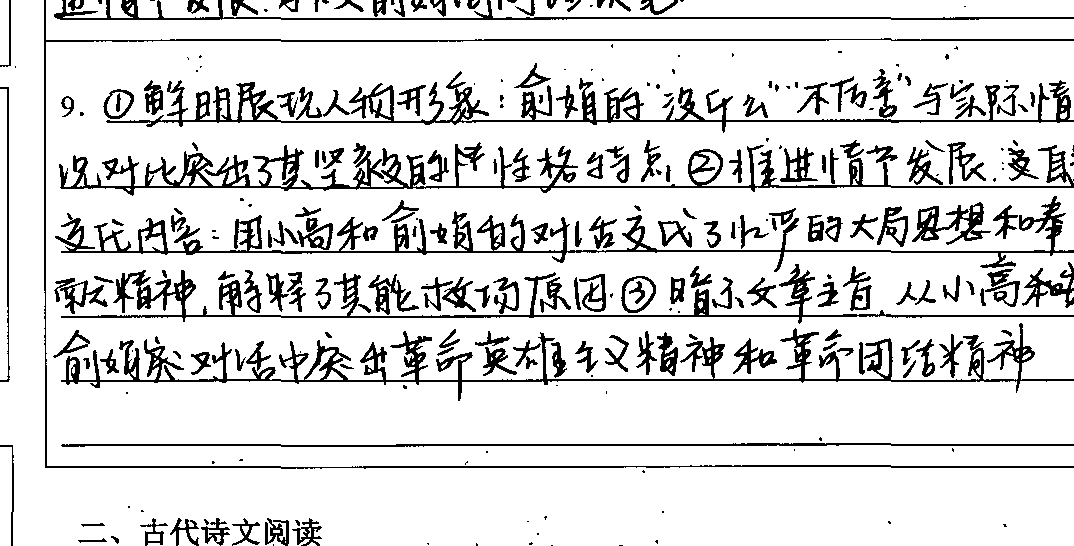 进情节发展
9. ①鲜明展现人物形象：俞娟的“没什么”“不厉害”与实际情
况对比突出了其坚毅的性格特点 ②推进情节发展.交
交代内容：用小高和俞娟的对话交代了 的大局思想和奉
献精神，解释了其能救场原因.③暗示文章主旨，从小高和
俞娟 对话中突出革命英雄主义精神和革命团结精神
二、古代诗文阅读